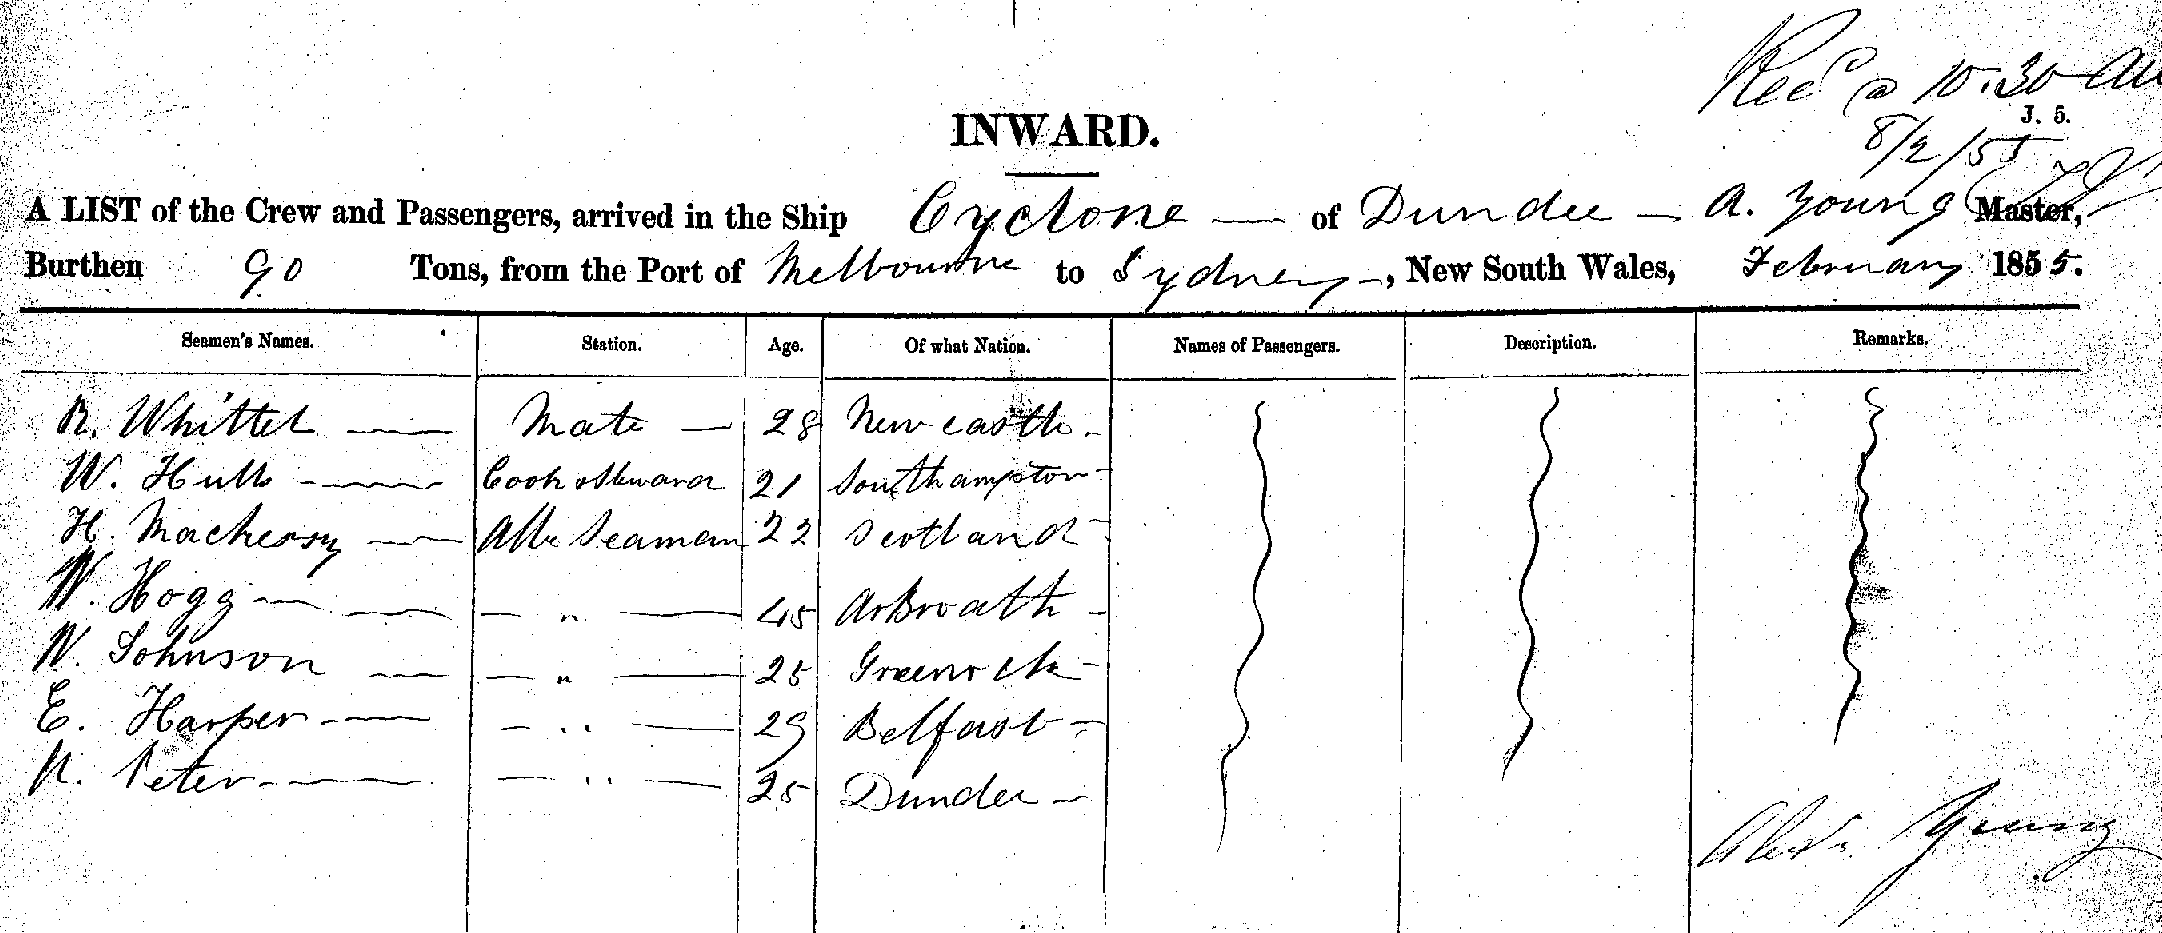 Recd @ 10.30 AM
J. 5.
8/2/55
INWARD.
A LIST of the Crew and Passengers, arrived in the Ship Cyclone — of Dundee — A. Young Master,
Burthen 90 Tons, from the Port of Melbourne to Sydney —, New South Wales, February 1855.
Seamen's Names. Station. Age. Of what Nation. Names of Passengers. Description. Remarks.
R. Whittet — Mate — 28 Newcastle -
W. Hull — Cook & Steward 21 Southampton -
H. Mackersy — Able Seaman 22 Scotland -
W. Hogg — — " — 45 Arbroath -
W. Johnson — — " — 25 Greenock -
E. Harper — — " — 29 Belfast -
Peter — — " — 25 Dundee -
Alexr. Young